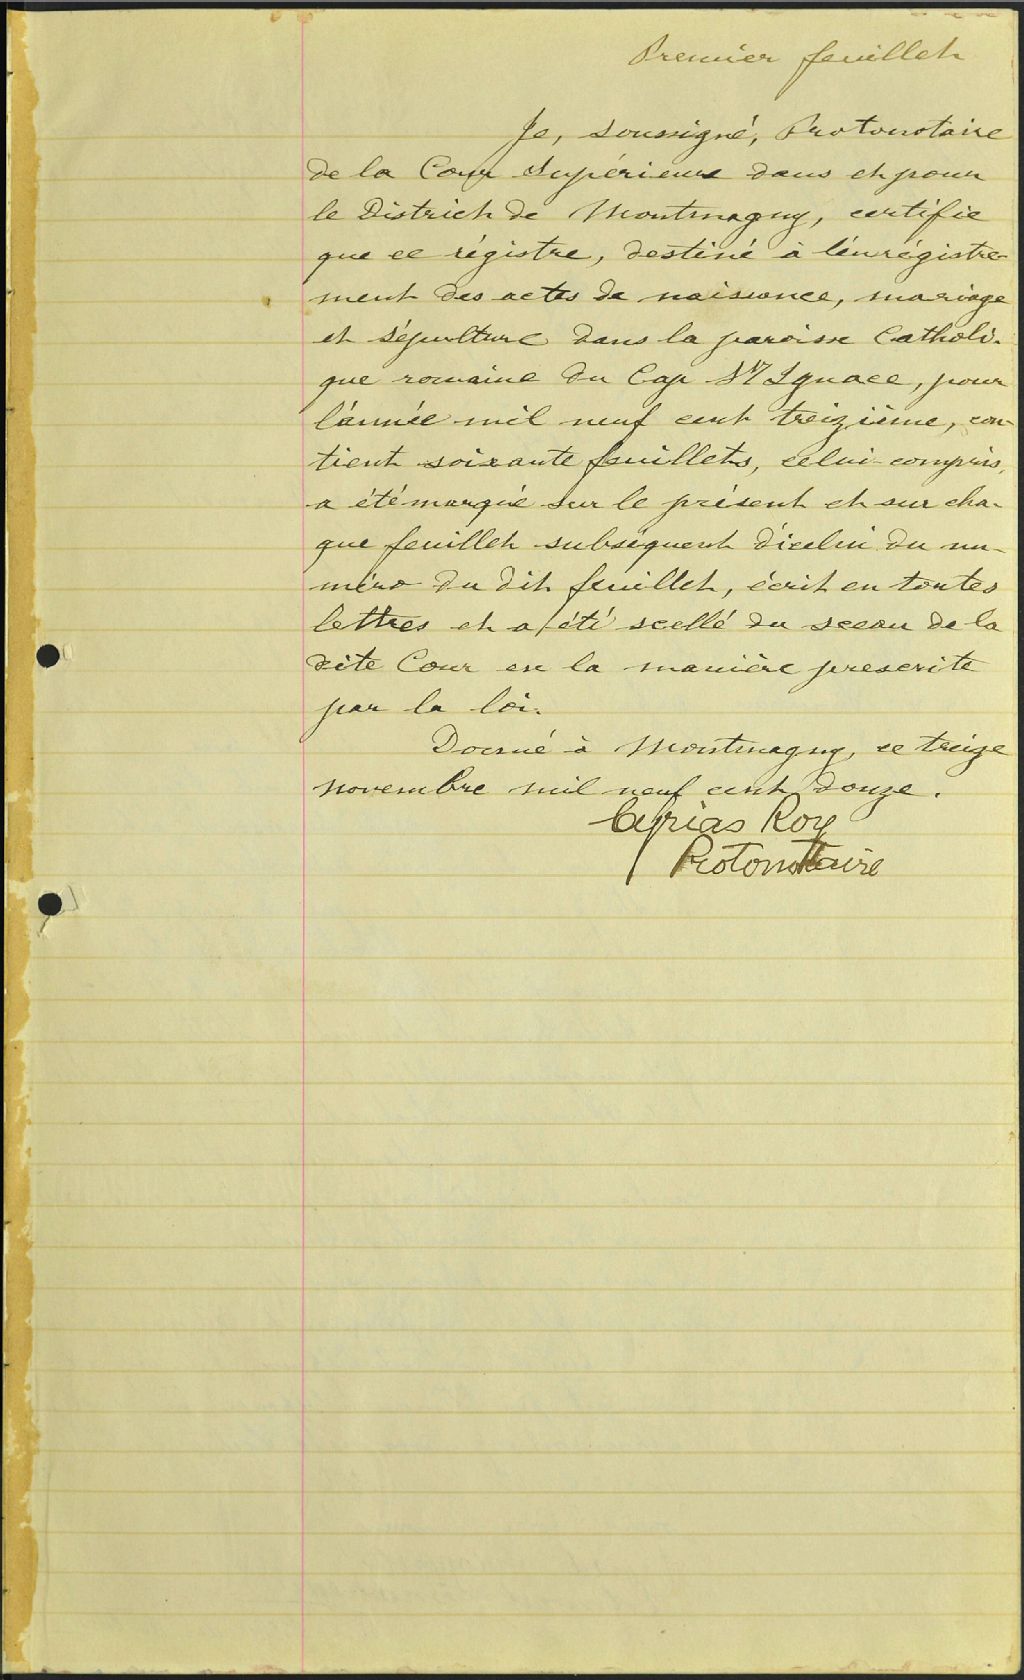 Premier feuillet
Je, soussigné, Protonotaire
de la Cour Supérieure dans et pour
le District de Montmagny, certifie
que ce régistre, destiné à l'énrégistre-
ment des actes de naissance, mariage
et sépulture dans la paroisse Catholi-
que romaine du Cap St Ignace, pour
l'année mil neuf cent treizième, con-
tient soixante feuillets, celui-compris,
a été marqué sur le présent et sur cha-
que feuillet subséquent d'icelui du nu-
méro du dit feuillet, écrit en toutes
lettres et a été scellé du sceau de la
dite Cour en la manière prescrite
par la loi.
Donné à Montmagny, ce treize
novembre mil neuf cent douze.
Cyrias Roy
Protonotaire